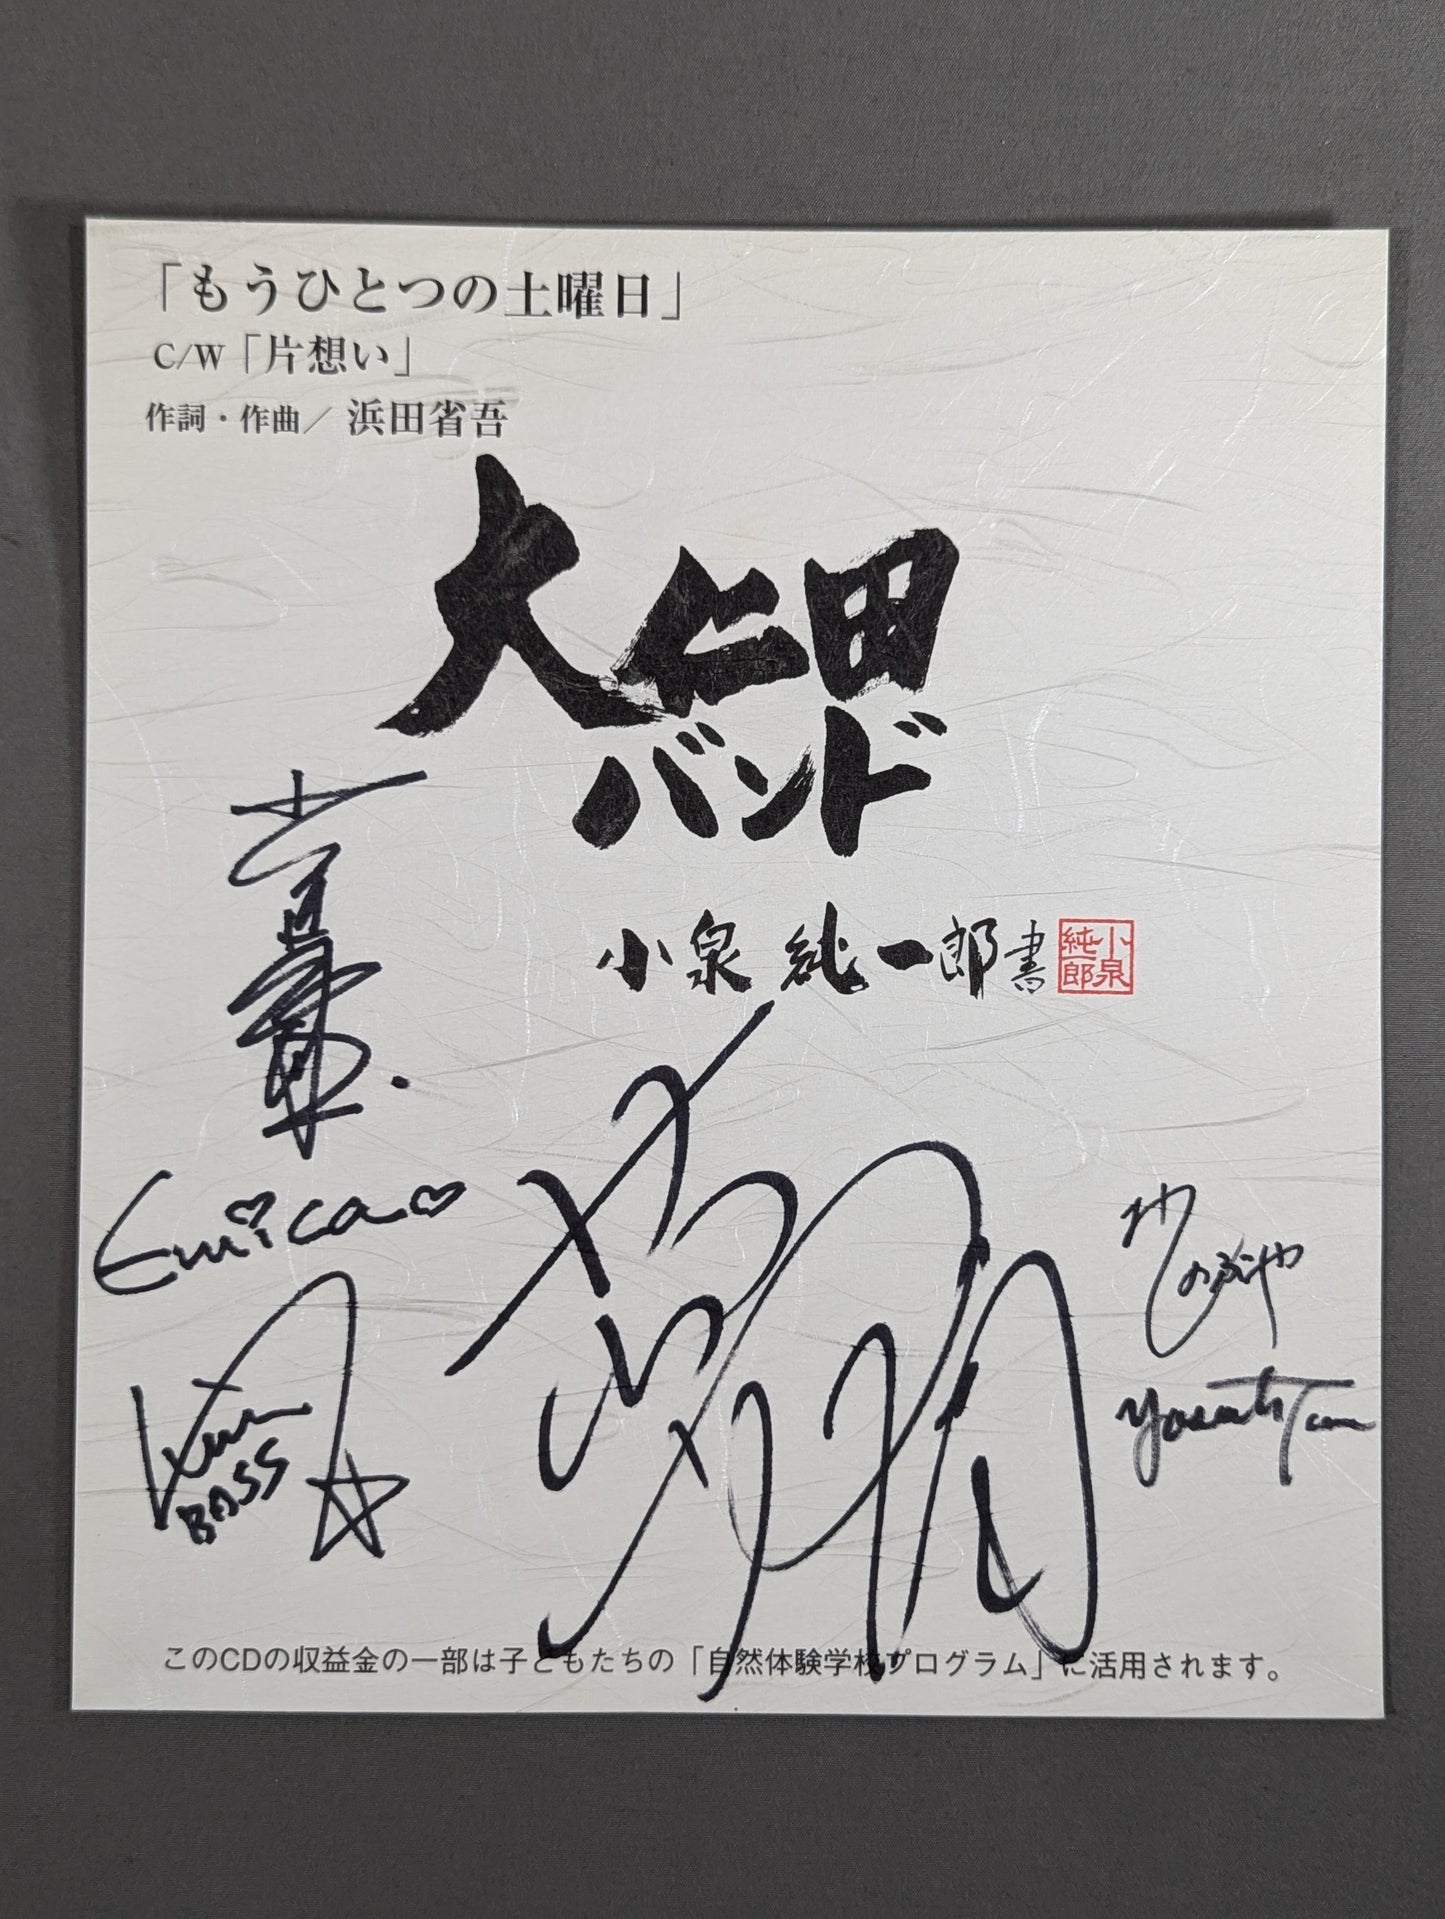 「もうひとつの土曜日」
C/W「片想い」
作詞・作曲／浜田省吾
大仁田
バンド
小泉 純一郎 書
小泉純一郎
Emica
BASS
このCDの収益金の一部は子どもたちの「自然体験学校プログラム」に活用されます。